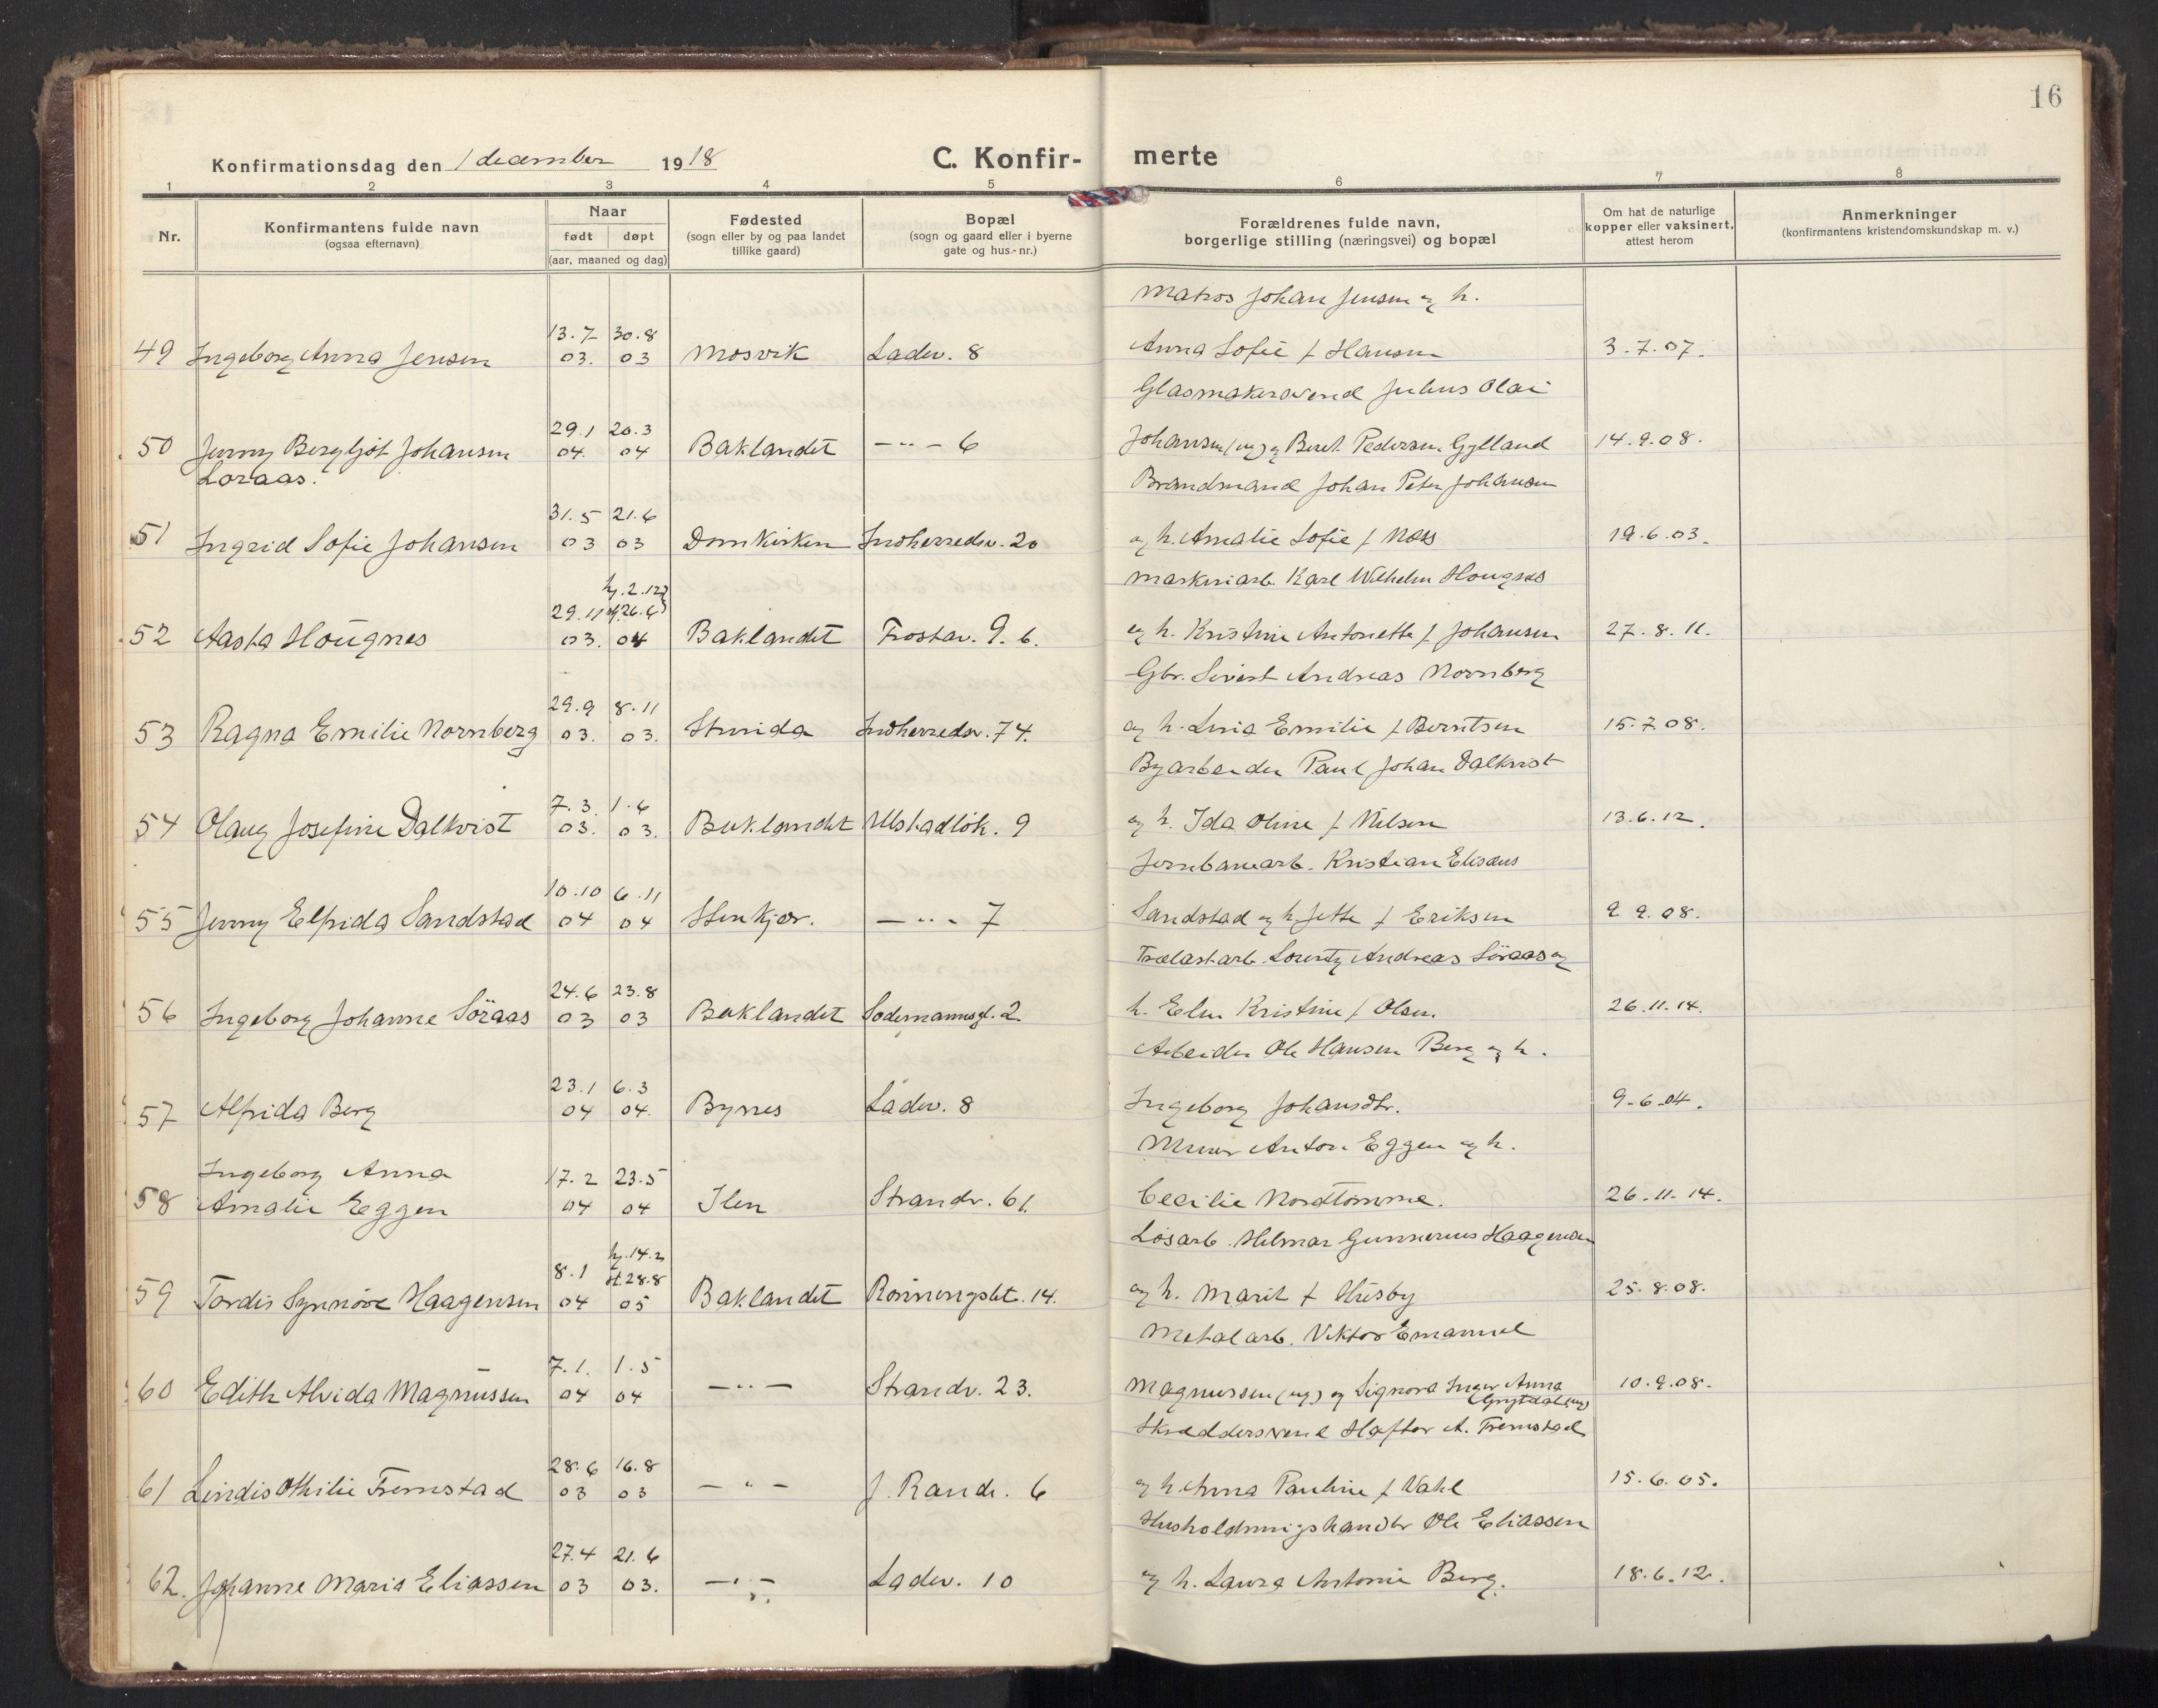 16
Konfirmationsdag den 1 december 1918
C. Konfir- merte
1 2 3 4 5 6 7 8
Nr.
Konfirmantens fulde navn
(ogsaa efternavn)
Naar
født døpt
(aar, maaned og dag)
Fødested
(sogn eller by og paa landet
tillike gaard)
Bopæl
(sogn og gaard eller i byerne
gate og hus.-nr.)
Forældrenes fulde navn,
borgerlige stilling (næringsvei) og bopæl
Om hat de naturlige
kopper eller vaksinert,
attest herom
Anmerkninger
(konfirmantens kristendomskundskap m. v.)
Matros Johan Jensen og h.
13.7 30.8
49 Ingeborg Anna Jensen 03. 03 Mosvik Ladev. 8 Anna Sofie f Hansen 3.7.07.
Glasmakersvend Julius Olai
29.1 20.3
50 Jenny Bergljot Johansen 04. 04 Baklandet —"— 6 Johansen (ug) og Beret Pedersen Gylland 14.9.08.
Loraas.
Brandmand Johan Peter Johansen
31.5 21.6
51 Ingrid Sofie Johansen 03 03 Domkirken Indherredsv. 20 og h. Amalie Sofie f Næss 19.6.03.
Maskinarb. Karl Wilhelm Hougnes
hj. 2.12
29.11 26.6
52 Aasta Hougnes 03. 04 Baklandet Frostav. 9.6. og h. Kristine Antonette f Johansen 27.8.11.
Gbr. Sivert Andreas Nornberg
29.9 8.11
53 Ragna Emilie Nornberg 03. 03. Strinda Indherredsv. 74. og h. Lina Emilie f Berntsen 15.7.08.
Byarbeider Paul Johan Dalkvist
7.3 1.6
54 Olaug Josefine Dalkvist 03. 03. Baklandet Ulstadløk. 9 og h. Ida Oline f Nilsen 13.6.12.
Jernbanearb. Kristian Elisæus
10.10 6.11
55 Jenny Elfrida Sandstad 04 04 Stenkjær. —"— 7 Sandstad og h. Jette f Eriksen 9.9.08.
Trælastarb. Lorentz Andreas Söraas og
24.6 23.8
56 Ingeborg Johanne Söraas 03 03 Baklandet Sodemannsgt. 2. h. Elen Kristine f Olsen. 26.11.14.
Arbeider Ole Hansen Berg og h.
23.1 6.3
57 Alfrida Berg 04 04. Bynes Ladev. 8 Ingeborg Johansdtr. 9.6.04.
Murer Anton Eggen og h.
Ingeborg Anna 17.2 23.5
58 Amalie Eggen 04 04 Ilen Strandv. 61. Cecilie Nordtömme. 26.11.14.
Løsarb. Hilmar Gunnerius Haagensen
hj. 14.2
8.1 st. 28.8
59 Tordis Synnöve Haagensen 04 05 Baklandet Rönningslet. 14. og h. Marit f Husby 25.8.08.
Metalarb. Viktor Emanuel
7.1. 1.5
60 Edith Alvida Magnussen 04 04 —"— Strandv. 23. Magnussen (ug) og Signora Inger Anna 10.9.08.
Grytdal (ug)
Skræddersvend Haftor A. Fremstad
28.6 16.8
61 Lindis Othilie Fremstad 03 03 —"— J. Randv. 6 og h. Anna Pauline f Vahl 15.6.05.
Husholdningshandler Ole Eliassen
27.4 21.6
62. Johanne Maria Eliassen 03 03. —"— Ladev. 10 og h. Laura Antonie Berg. 18.6.12.